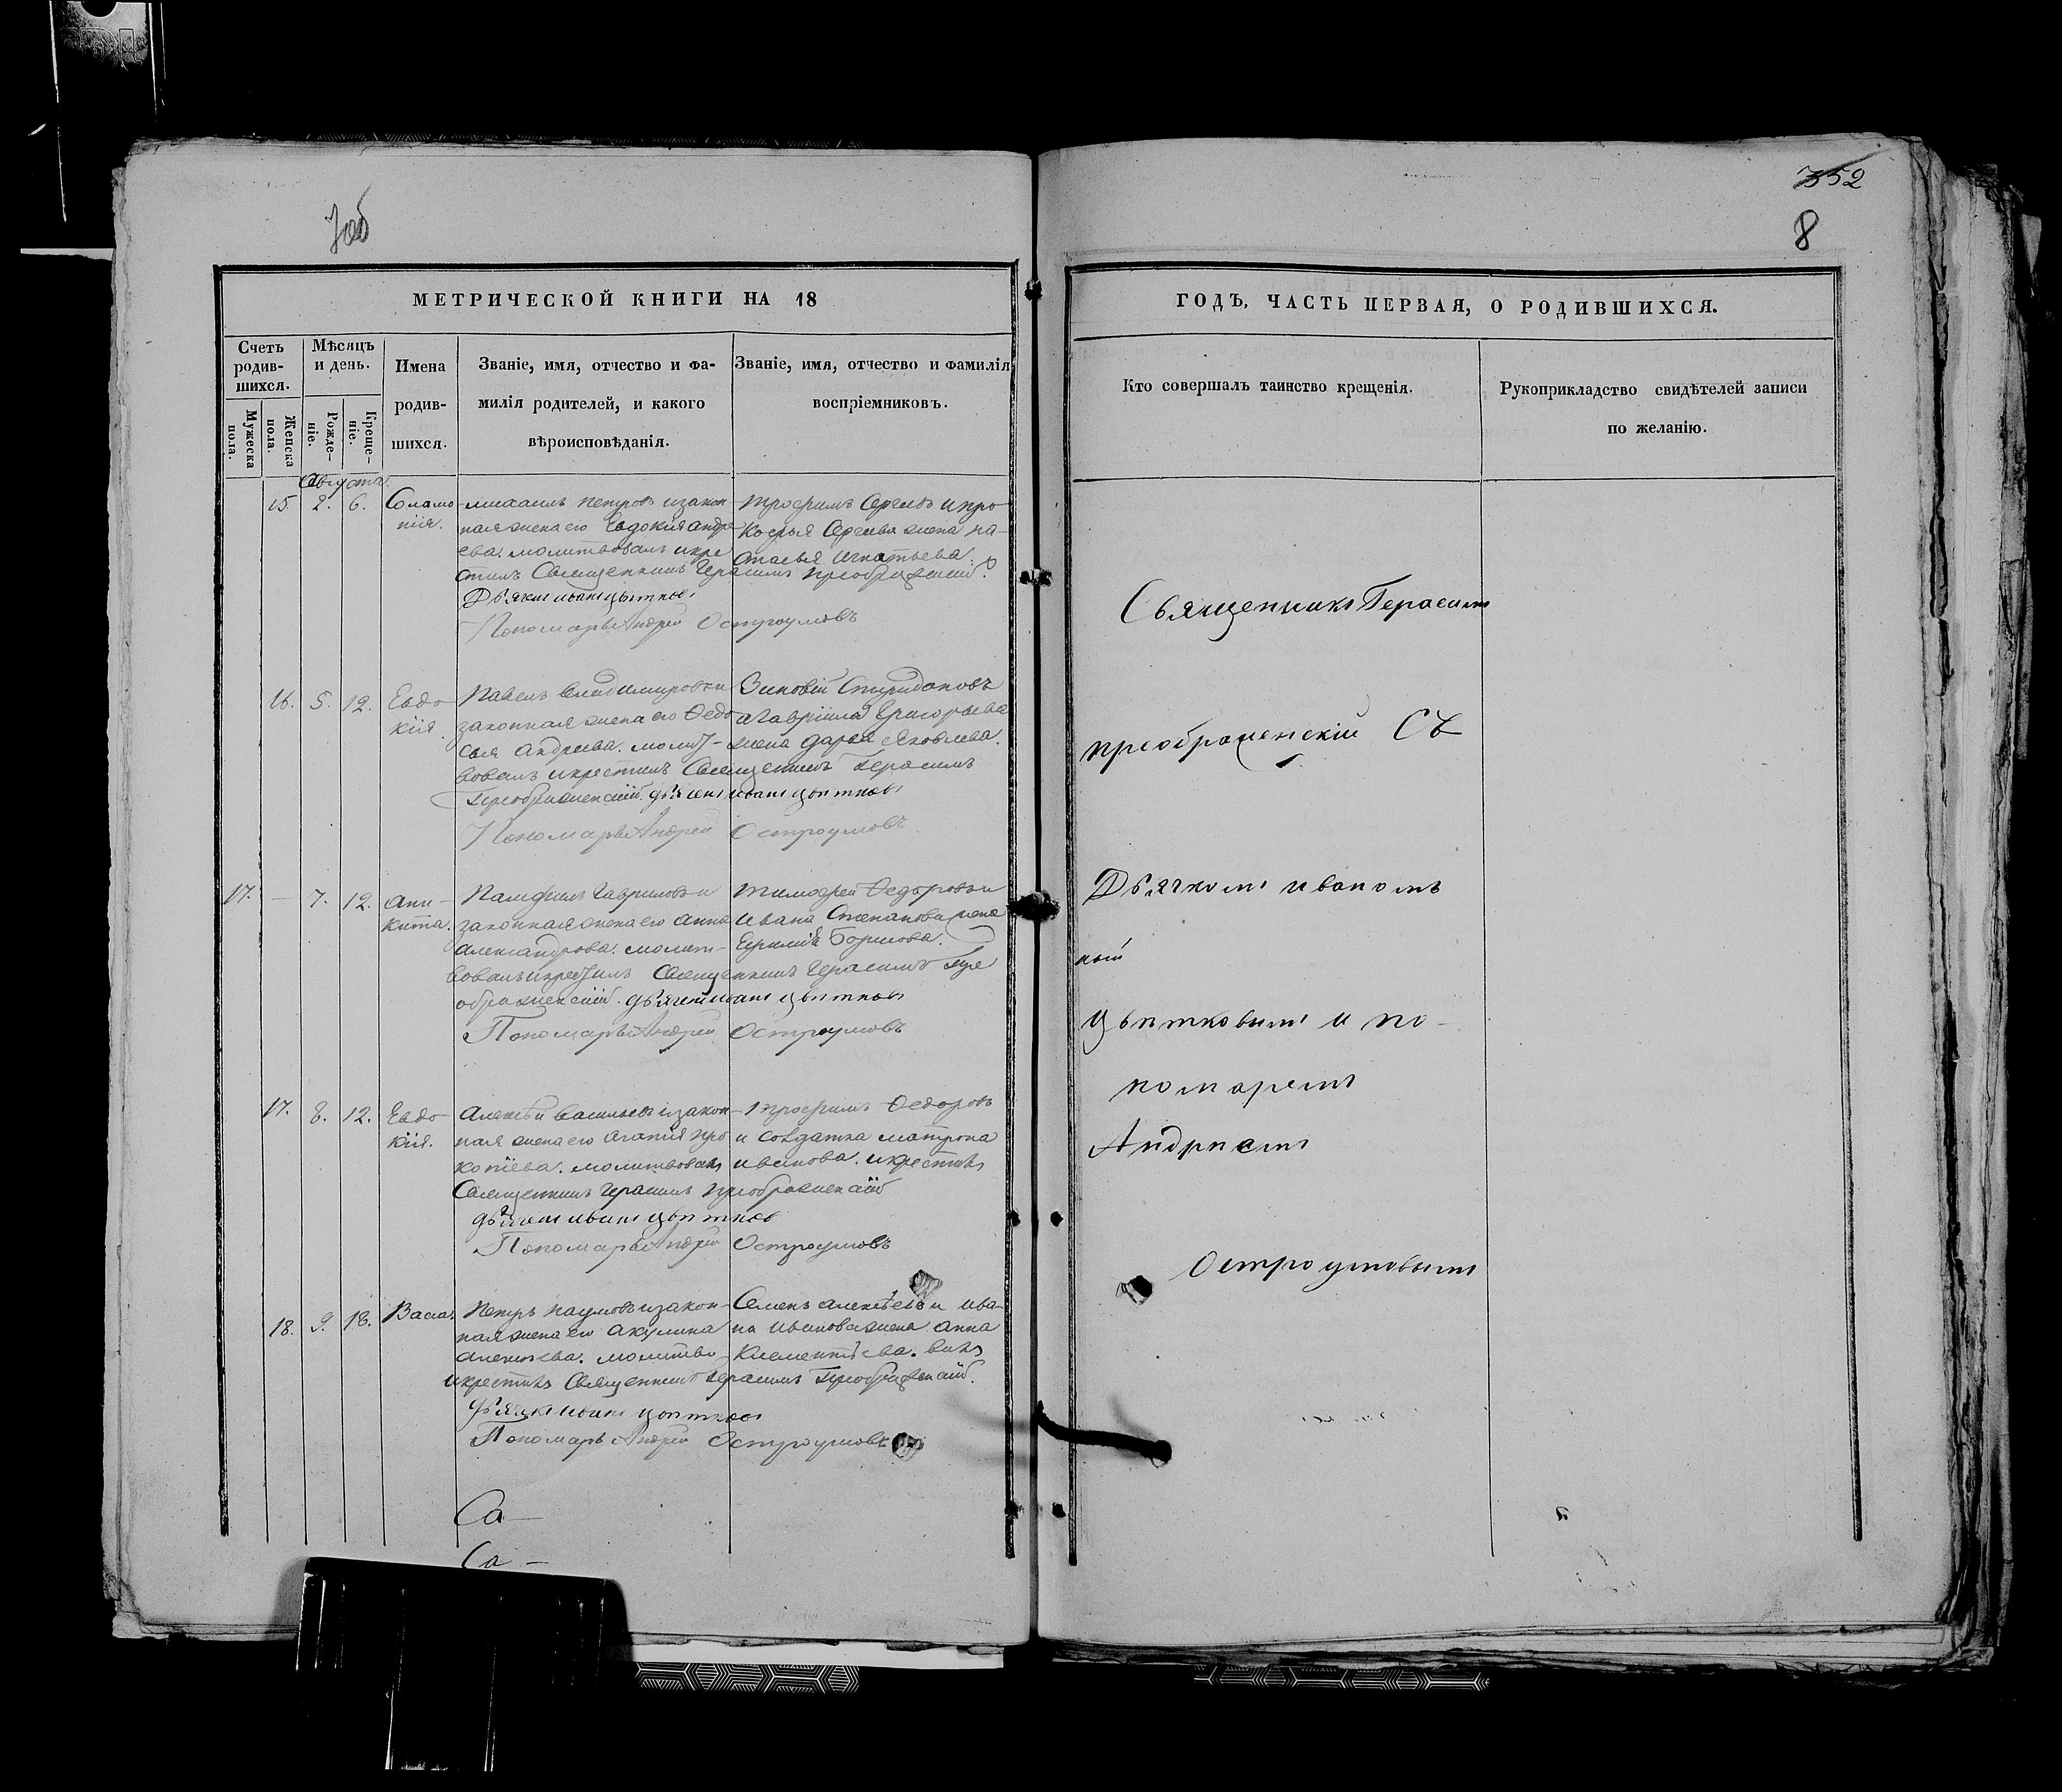 7об
352
8
МЕТРИЧЕСКОЙ КНИГИ НА 18
ГОДЪ, ЧАСТЬ ПЕРВАЯ, О РОДИВШИХСЯ.
Счетъ родив-шихся.
Мужеска пола.
Женска пола.
Мѣсяцъ и день.
Рожде-ніе.
Креще-ніе.
Имена
родив-
шихся.
Званіе, имя, отчество и фа-
милія родителей, и какого
вѣроисповѣданія.
Званіе, имя, отчество и фамилія
воспріемниковъ.
Кто совершалъ таинство крещенія.
Рукоприкладство свидѣтелей записи
по желанію.
Августа.
15. 2. 6. Соломо-
нія.
михаилъ петровъ изакон-
ная жена его Евдокия андре
ева. молитвовалъ икре
стилъ Священникъ Герасимъ преображенскій
Дьячекъ иванъ цвѣтковъ
Пономарь Андрей Остроумовъ
трофимъ Сергѣевъ ипро
кофья Сергѣева жена на-
стасья игнатьева.
16. 5. 12. Евдо-
кія.
Павелъ Владимировъ и
законная жена его Федо
сья андреева. молит-
вовалъ икрестилъ Священникъ герасимъ
преображенскій. дьячекъ иванъ цвѣтковъ
Пономарь Андрей Остроумовъ
Зиновій Спиридоновъ
игавріила Григорьева
жена дарья Яковлева.
17. — 7. 12. ани-
кита.
Памфилъ Гавриловъ и
законная жена его анна
александрова. молит-
вовалъ икрестилъ Священникъ герасимъ пре
ображенскій. дьячекъ иванъ цвѣтковъ
Пономарь Андрей Остроумовъ
тимофей Федоровъ и
ивана Степанова жена
Борисова.
17. 8. 12. Евдо-
кія.
Алексѣй васильевъ изакон-
ная жена его агапия про
копіева. молитвовалъ
Священникъ герасимъ преображенскій
дьячекъ иванъ цвѣтковъ
Пономарь Андрей Остроумовъ
трофимъ Федоровъ
и солдатка матрона
иванова. икрестилъ
18. 9. 18. Васса.
Петръ наумовъ изакон-
ная жена его акулина
алексѣева. молитво-
икрестилъ Священникъ герасимъ преображенскій.
дьячекъ иванъ цвѣтковъ
Пономарь Андрей Остроумовъ
Семенъ алексѣевъ и ива-
на иванова жена анна
Клементьева. валъ
Са—
Са—
Священникъ Герасимъ
преображенскій Съ
Дьячкомъ иваномъ
цвѣтковымъ и по-
номаремъ
Андреемъ
Остроумовымъ